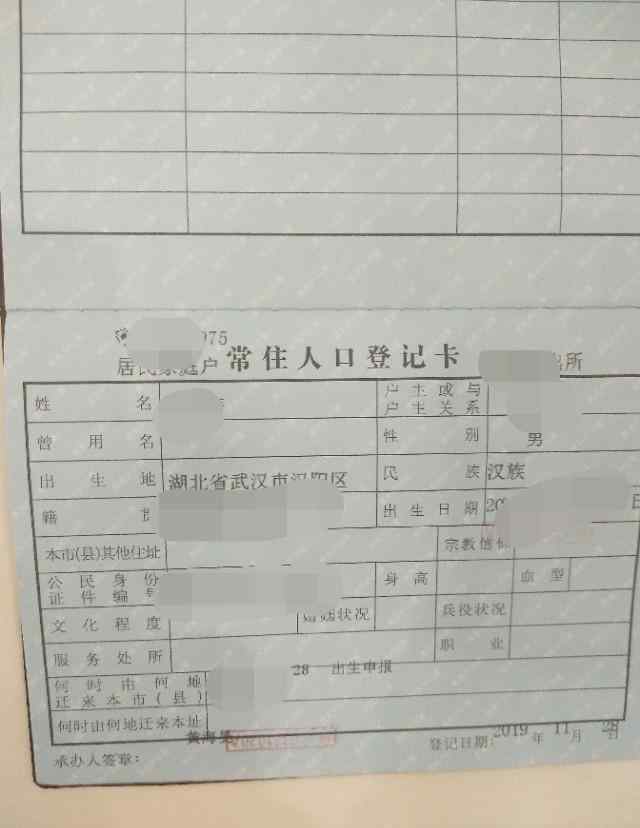 075
居民家庭户 常住人口登记卡 出所
姓 名 户主或与
户主关系
曾用名 性别 男
出生地 湖北省武汉市汉阳区 民族 汉族
籍 出生日期 20 日
本市(县)其他住址 宗教信仰
公民身份
证件编号 身高 血型
文化程度 婚姻状况 兵役状况
服务处所 职业
何时由何地
迁来本市(县) 28 出生申报
何时由何地迁来本址
承办人签章: 黄海 登记日期: 2019 年 11 月 28 日